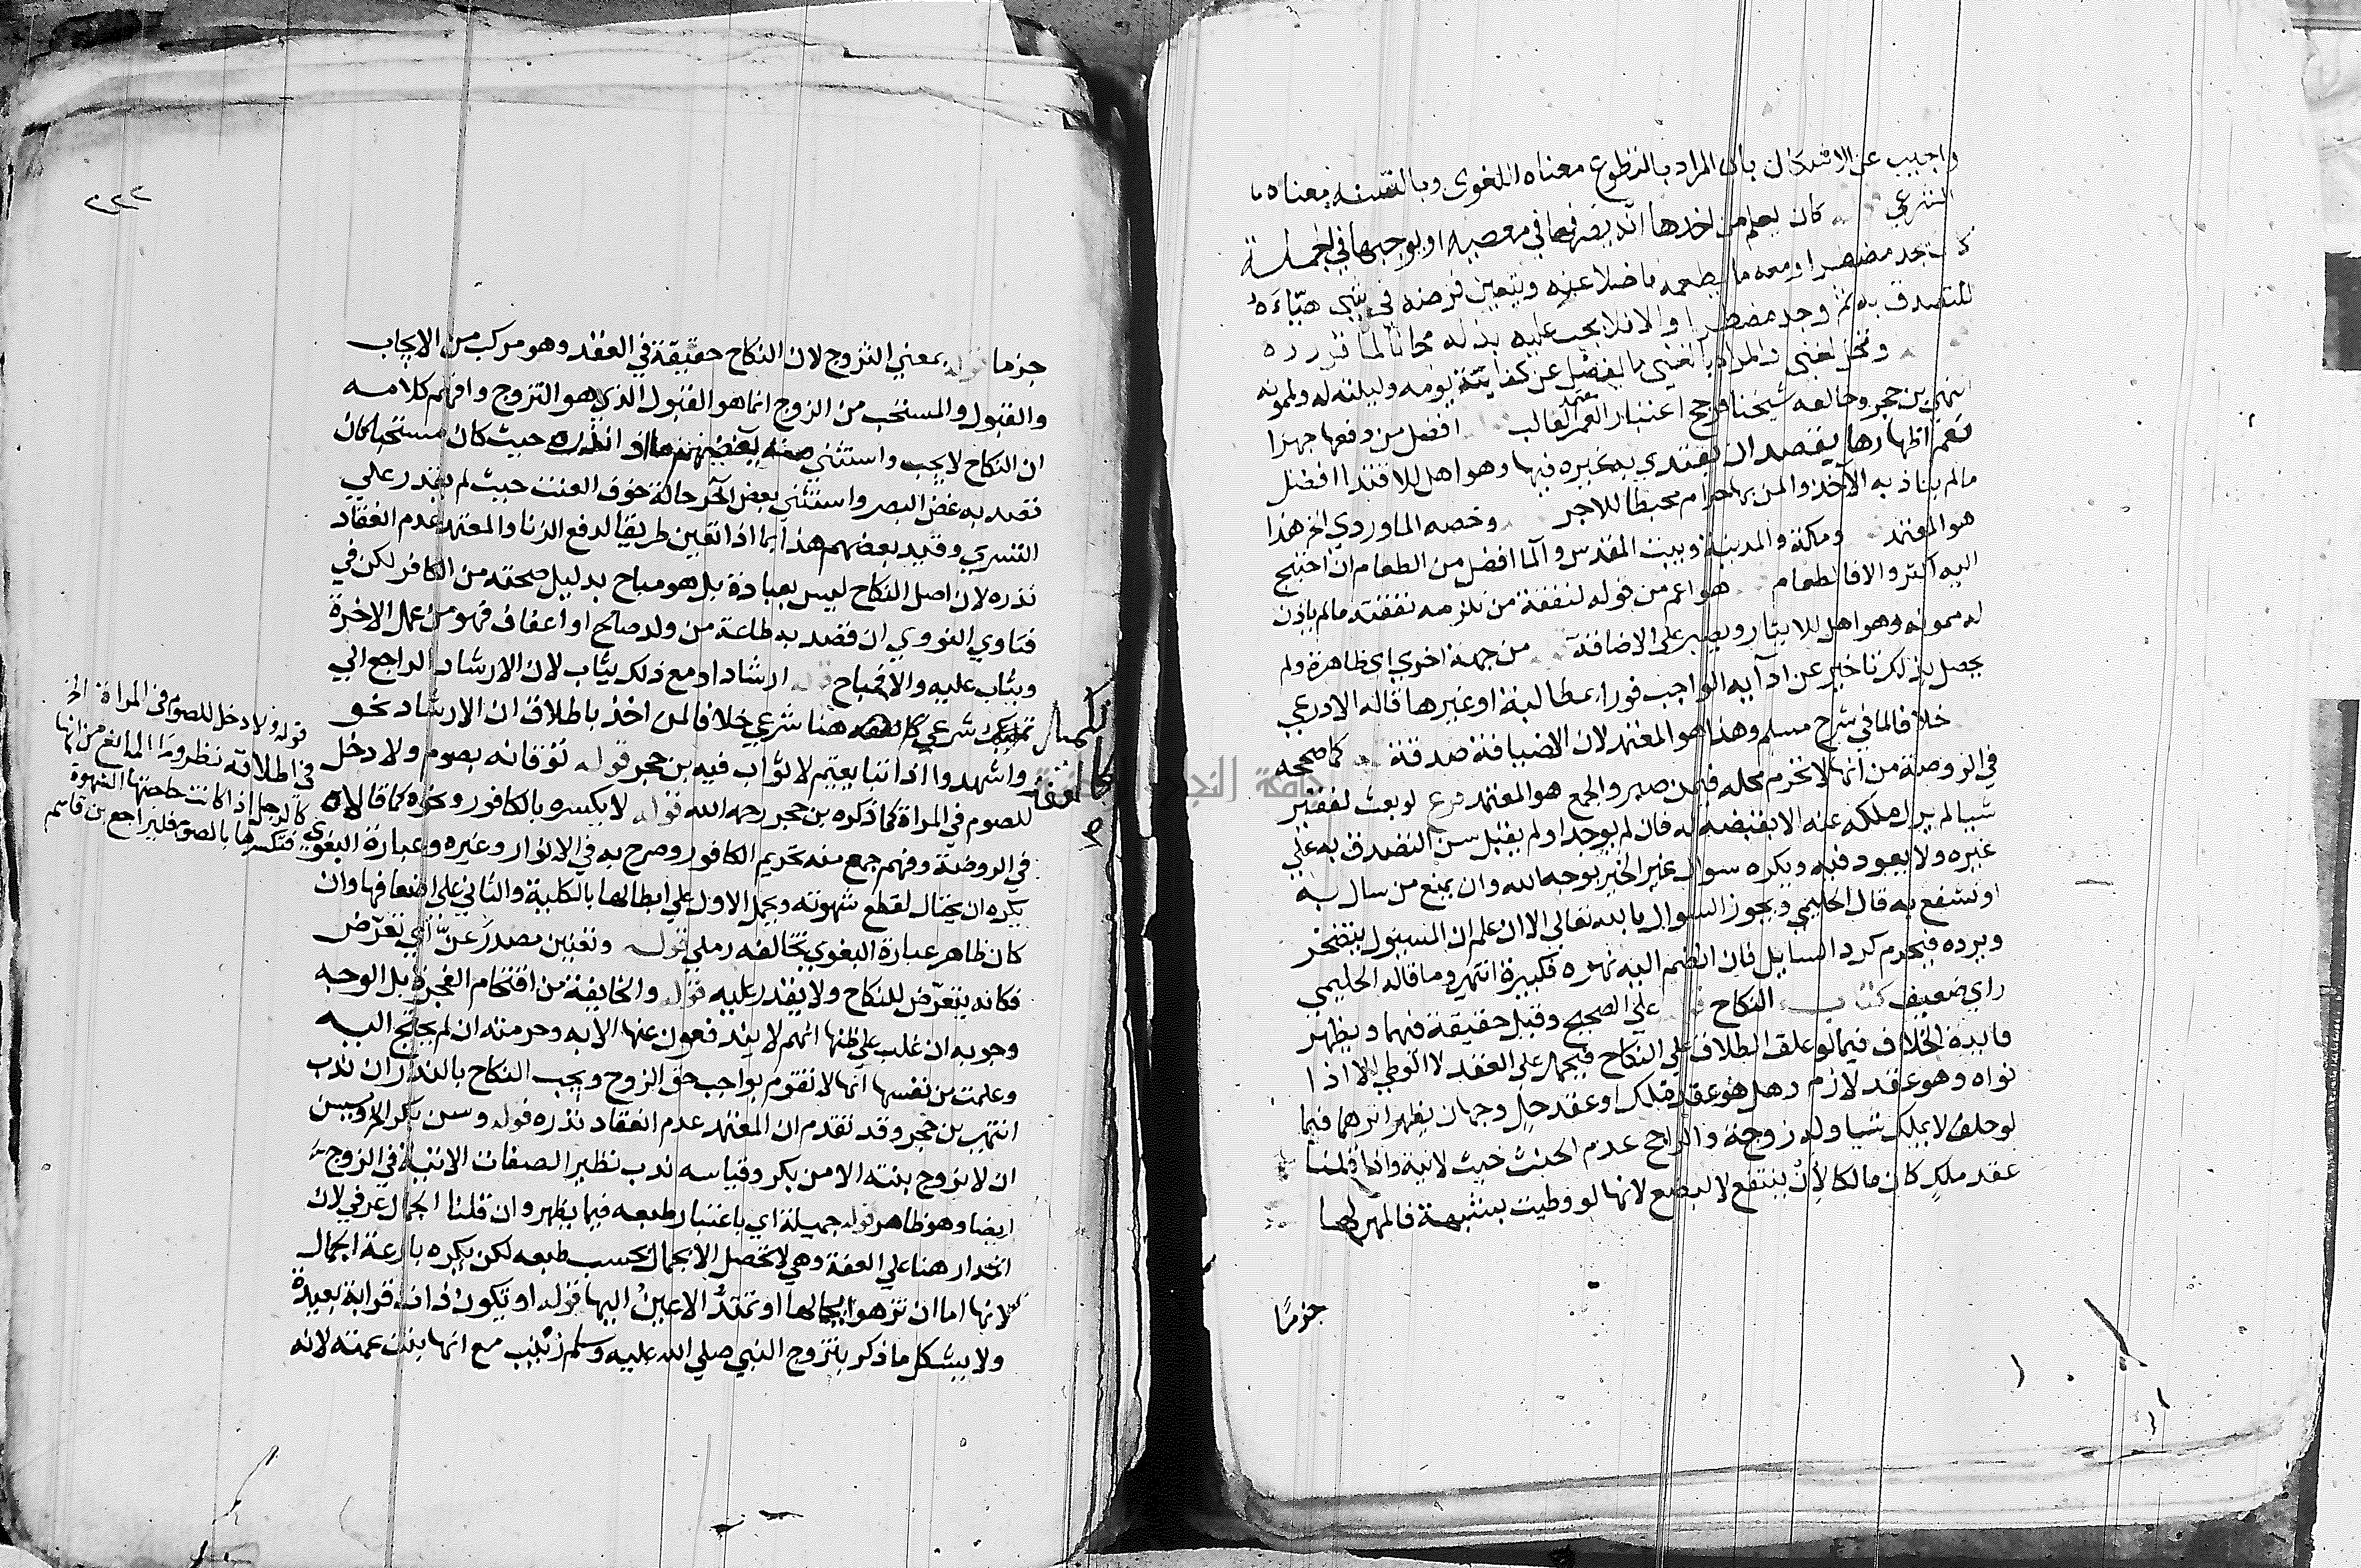 واجيب عن الاشكال بان المراد بالتطوع معناه اللغوي وبالتسنه معناه
الشرعي كان يعلم من اخذها انه يصرفها في معصيه او يوجبها في الجملة
كان يجد مضطرا ومعه ما يطعمه فاضلا عنه ويتعين فرضه في شي هيّاه
للتصدق به ثم وجد مضطرا والا فلا يجب عليه بذله مجانا لما قرروه
وتحل لغني والمراد بالغني ما يفضل عن كفايته يومه وليلته له ولممونه
انتهى بن حجر وخالفه شيخنا فرجح اعتبار العمر الغالب افضل من دفعها جهرا
معتمد
نعم اظهارها بقصد ان يقتدي به غيره فيها وهو اهل للاقتدا افضل
مالم يتاذ به الآخذ والمن بها حرام محبطا للاجر وخصه الماوردي الخ هذا
هو المعتمد ومكة والمدينة وبيت المقدس والما افضل من الطعام ان احتيج
اليه اكثر والا فالطعام هو اعم من قوله لنفقة من تلزمه نفقته مالم ياذن
له ممونه وهو اهل للايثار ويصبر على الاضافة من جهة اخري اي ظاهرة ولم
يحصل بذلك تاخير عن اداء الواجب فورا بمطالبة او غيرها قاله الاذرعي
خلافا لما في شرح مسلم وهذا هو المعتمد لان الضيافة صدقة كما صححه
في الروضة من انها لا تحرم محله فيمن صبر والجمع هو المعتمد فرع لو بعث لفقير
شيا لم يزل ملكه عنه الا بقبضه له فان لم يوجد او لم يقبل سن التصدق به علي
غيره ولا يعود فيه ويكره سوال غير الخير بوجه الله وان يمنع من سال به
او تشفع به قال الحليمي ويجوز السوال بالله تعالي الا ان علم ان المسيول يتضجر
ويرده فيحرم كرد السايل فان انضم اليه نهره فكبيرة انتهى وما قاله الحليمي
راي ضعيف كتاب النكاح علي الصحيح وقيل حقيقة فيهما ويظهر
فايدة الخلاف فيما لو علق الطلاق علي النكاح فيحمل على العقد لا الوطي الا اذا
نواه وهو عقد لازم وهل هو عقد ملك او عقد حل وجهان يظهر اثرهما فيما
لو حلف لا يملك شيا وله زوجة والراجح عدم الحنث حيث لا نية واذا قلنا
عقد ملك كان مالكا لأن ينتفع لا لبضع لانها لو وطيت بشبهة فالمهر لها
جزمًا
٢٢٢
جزما قوله بمعني التزوج لان النكاح حقيقة في العقد وهو مركب من الايجاب
والقبول والمستحب من الزوج انما هو القبول الذي هو التزوج وافهم كلامه
ان النكاح لا يجب واستثني بعضهم ما اذا نذره حيث كان مستحبا كان
قصد به غض البصر واستثني بعض آخر حالة خوف العنت حيث لم يقدر علي
التسري وقيد بعضهم هذا بما اذا تعين طريقا لدفع الزنا والمعتمد عدم انعقاد
نذره لان اصل النكاح ليس بعبادة بل هو مباح بدليل صحته من الكافر لكن في
فتاوي النووي ان قصد به طاعة من ولد صالح او اعفاف فهو من عمل الاخرة
ويثاب عليه والا فمباح قوله ارشادا ومع ذلك يثاب لان الارشاد الراجع الي
تكميل شرعي كالعفه هنا شرعي خلافا لمن اخذ باطلاق ان الارشاد نحو
واشهدوا اذا تبايعتم لا ثواب فيه بن حجر قوله توقانه بصوم ولا دخل
للصوم في المراة كما ذكره بن حجر رحمه الله قوله لا بكسره بالكافور ونحوه كما قالاه
في الروضة وفهم جمع منه تحريم الكافور وصرح به في الانوار وغيره وعبارة البغوي
يكره ان يحتال لقطع شهوته ويحمل الاول علي ابطالها بالكلية والثاني علي اضعافها وان
كان ظاهر عبارة البغوي تخالفه رملي قوله وتعنين مصدر عنّ اي تعرض
فكانه يتعرّض للنكاح ولا يقدر عليه قوله والخايفة من اقتحام الفجرة بل الوجه
وجوبه ان غلب علي ظنها انهم لا يندفعون عنها الا به وحرمته ان لم يحتج اليه
وعلمت من نفسها انها لا تقوم بواجب حق الزوج ويجب النكاح بالنذر ان ندب
انتهى بن حجر وقد تقدم ان المعتمد عدم انعقاد نذره قوله وسن بكر الخ ويسن
ان لا يزوج بنته الا من بكر وقياسه ندب نظير الصفات الاتية في الزوجة
ايضا وهو ظاهر قوله جميلة اي باعتبار طبعه فيما يظهر وان قلنا الجمال عرفي لان
المدار هنا علي العفة وهي لا تحصل الا بجمال بحسب طبعه لكن يكره بارعة الجمال
لانها اما ان تزهو بجمالها او تمتد الاعين اليها قوله او يكون ذات قرابة بعيدة
ولا يشكل ما ذكر بتزوج النبي صلي الله عليه وسلم زينب مع انها بنت عمته لانه
تكميل
كالعفة
قوله ولا دخل للصوم في المراة الخ
في اطلاقه نظر وما المانع من انها
كالرجل اذا كانت حاجتها الشهوة
فتكسرها بالصوم فليراجع بن قاسم